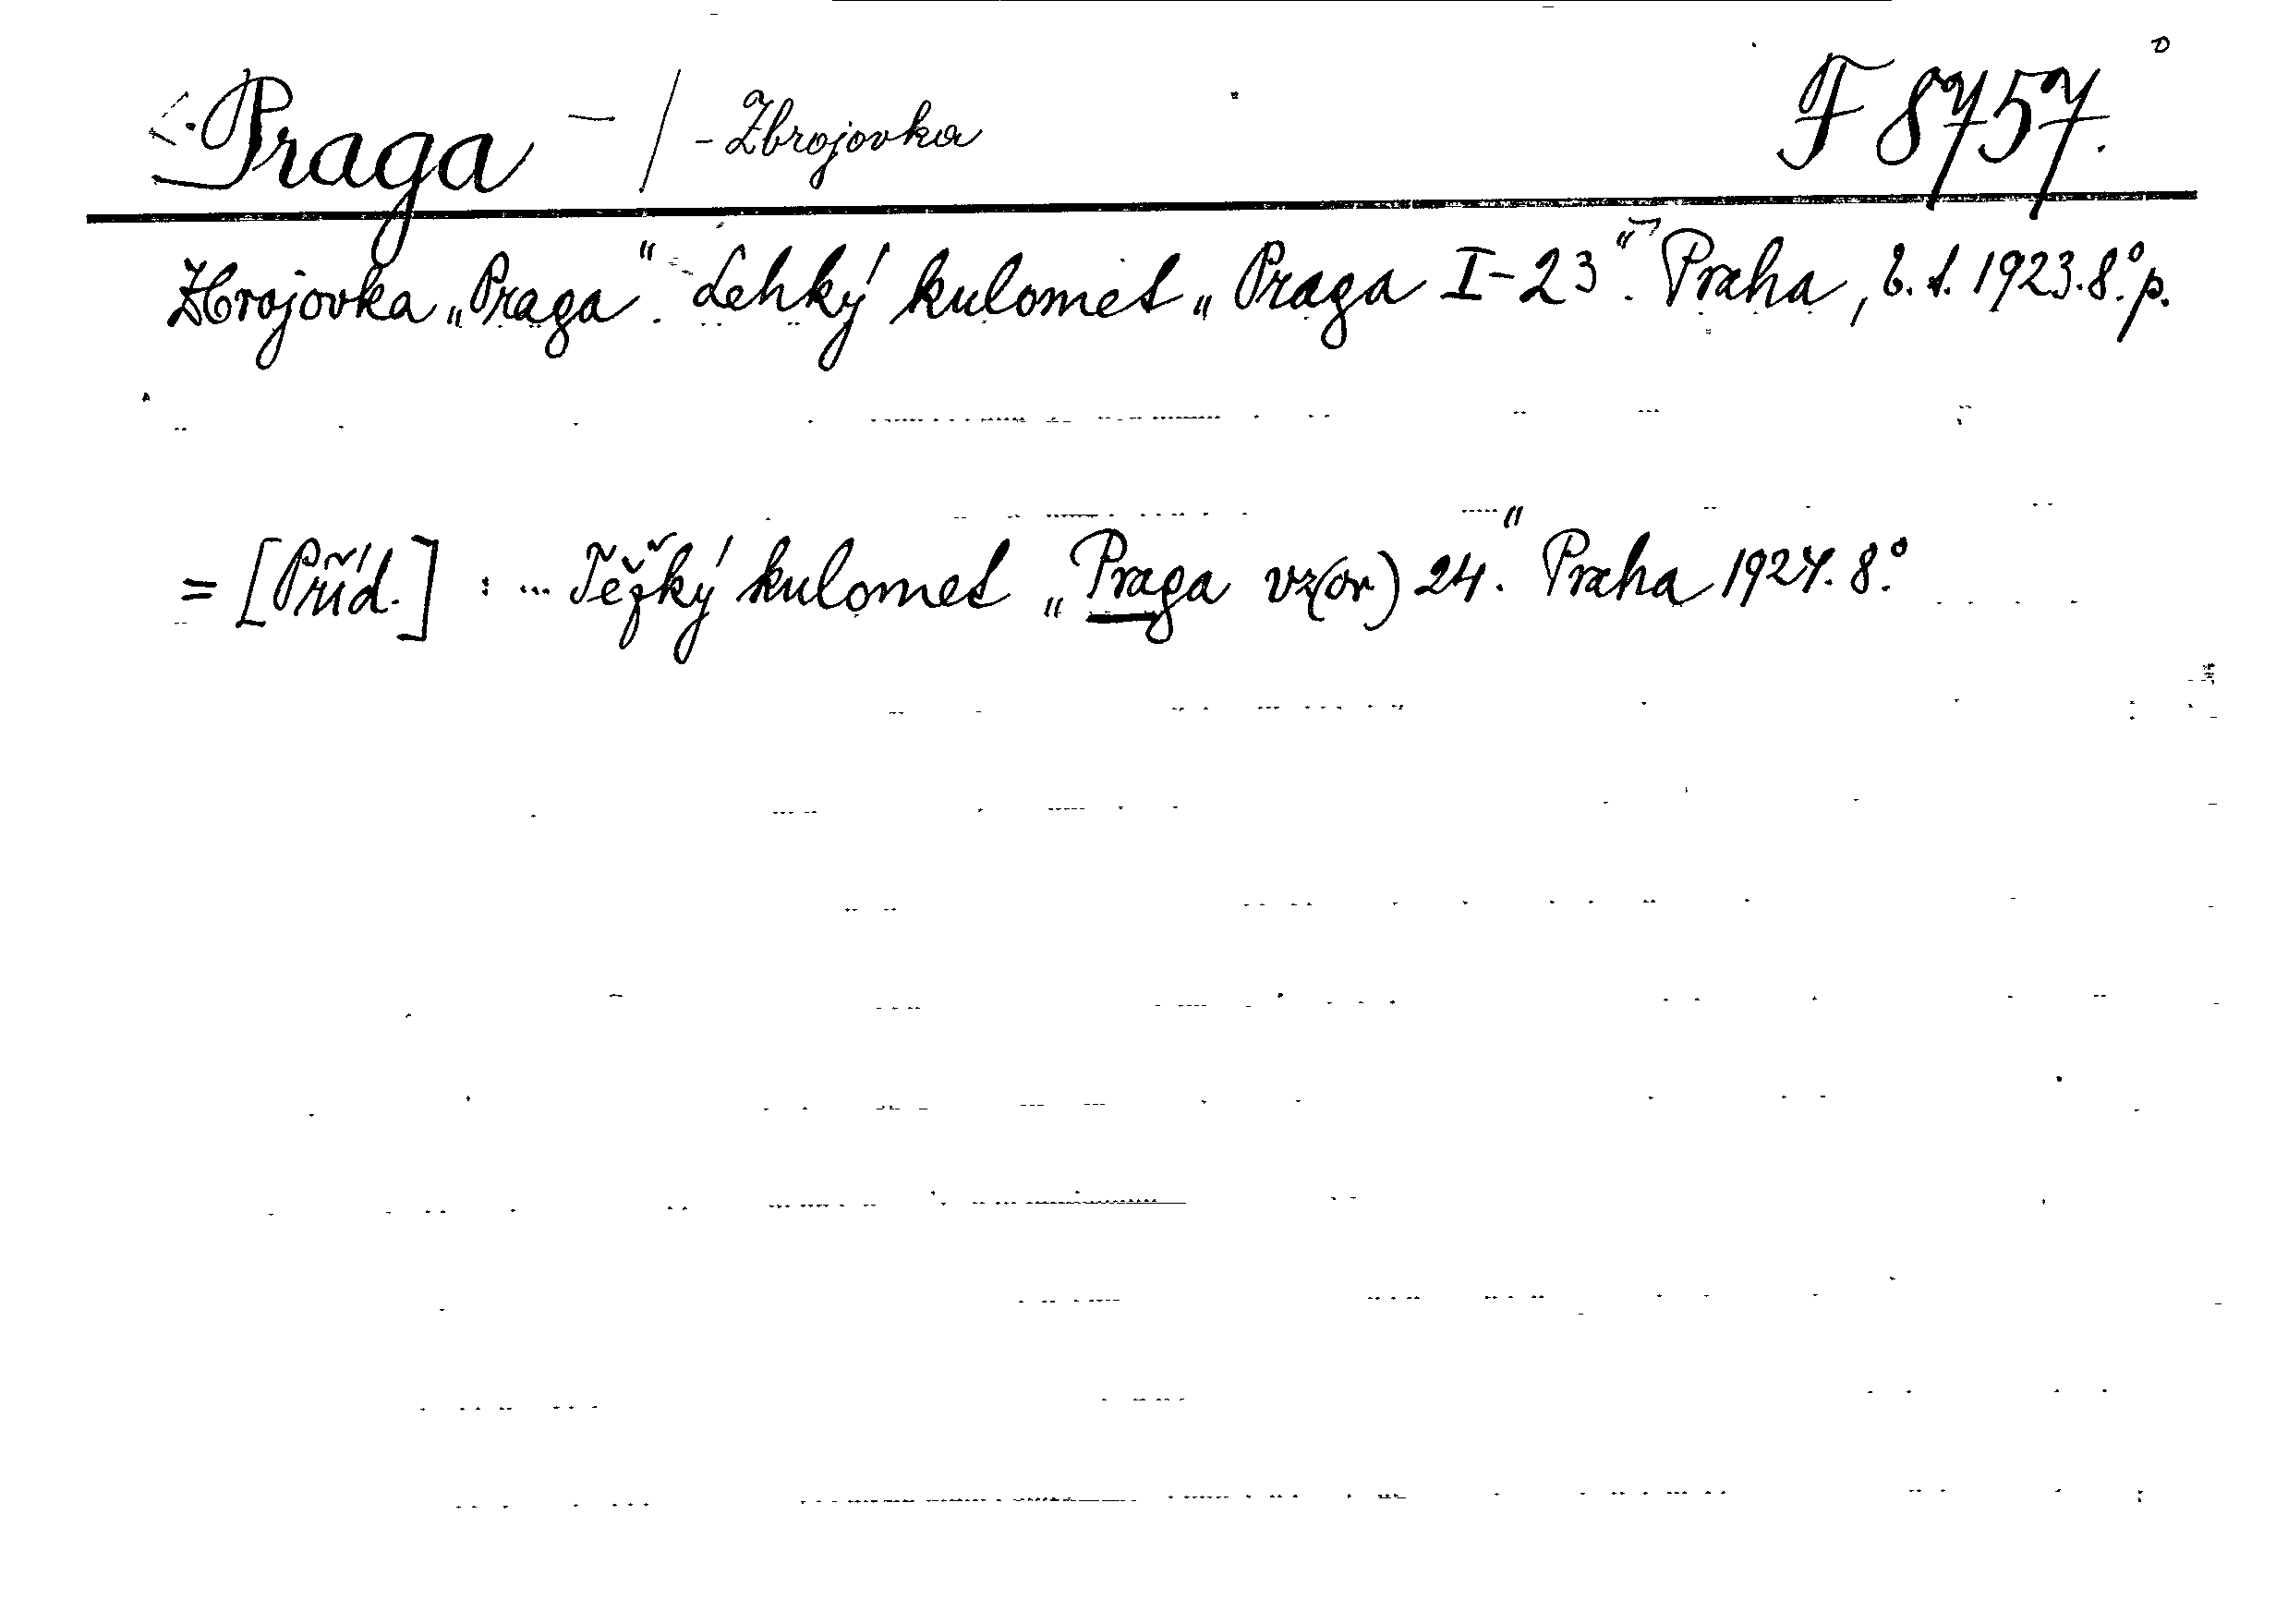 Praga – / - Zbrojovka F 8757.
Zbrojovka „Praga“. - Lehký kulomet „Praga I-23“. Praha, b. t. 1923. 8.° p.
= [Příd.] : ... Těžký kulomet „Praga vz(or) 24.“ Praha 1924. 8.°